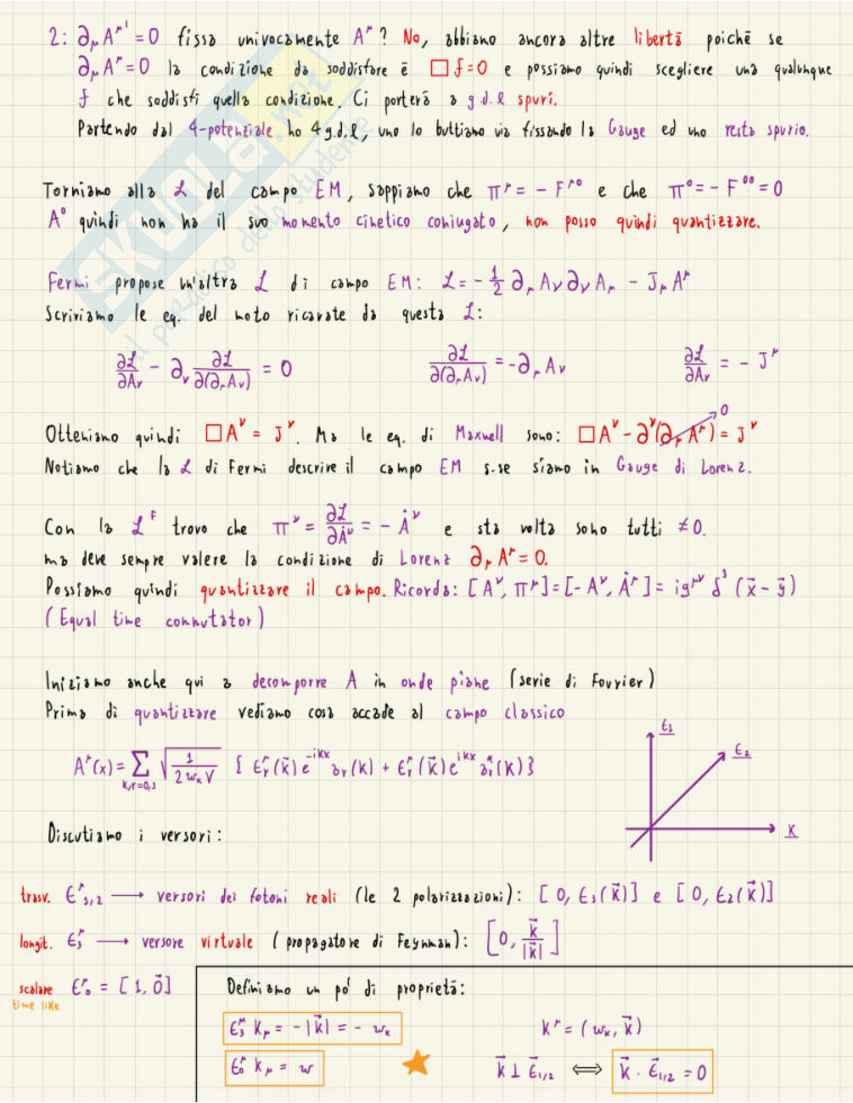 2: ∂_μ A^μ' = 0 fissa univocamente A^μ? No, abbiamo ancora altre libertà poichè se
∂_μ A^μ = 0 la condizione da soddisfare è □ f = 0 e possiamo quindi scegliere una qualunque
f che soddisfi quella condizione. Ci porterà a g.d.l spuri.
Partendo dal 4-potenziale ho 4 g.d.l, uno lo buttiamo via fissando la Gauge ed uno resta spurio.
Torniamo alla ℒ del campo EM, sappiamo che π^μ = - F^μ0 e che π^0 = - F^00 = 0
A^0 quindi non ha il suo momento cinetico coniugato, non posso quindi quantizzare.
Fermi propose un'altra ℒ di campo EM: ℒ = - 1/2 ∂_μ A_ν ∂_ν A_μ - J_μ A^μ
Scriviamo le eq. del moto ricavate da questa ℒ:
∂ℒ/∂A_ν - ∂_ν ∂ℒ/∂(∂_μ A_ν) = 0 ∂ℒ/∂(∂_μ A_ν) = - ∂_μ A_ν ∂ℒ/∂A_ν = - J^μ
Otteniamo quindi □ A^ν = J^ν. Ma le eq. di Maxwell sono: □ A^ν - ∂^ν(∂_μ A^μ) = J^ν 0
Notiamo che la ℒ di Fermi descrive il campo EM s.se siamo in Gauge di Lorenz.
Con la ℒ^F trovo che π^ν = ∂ℒ/∂Ȧ^ν = - Ȧ^ν e sta volta sono tutti ≠ 0.
ma deve sempre valere la condizione di Lorenz ∂_μ A^μ = 0.
Possiamo quindi quantizzare il campo. Ricorda: [A^ν, π^μ] = [- A^ν, Ȧ^μ] = i g^μν δ^3 (x⃗ - y⃗)
(Equal time commutator)
Iniziamo anche qui a decomporre A in onde piane (serie di Fourier)
Prima di quantizzare vediamo cosa accade al campo classico
A^μ(x) = Σ_{k,r=0,3} √(1/(2 w_k V)) { ε_r^μ(k⃗) e^{-ikx} a_r(k) + ε_r^μ(k⃗) e^{ikx} a_r^*(k) }
ε_1
ε_2
k
Discutiamo i versori:
trasv. ε^μ_1/2 → versori dei fotoni reali (le 2 polarizzazioni): [0, ε_1(k⃗)] e [0, ε_2(k⃗)]
longit. ε^μ_3 → versore virtuale (propagatore di Feynman): [0, k⃗/|k⃗|]
scalare ε^μ_0 = [1, 0⃗]
time like
Definiamo un po' di proprietà:
ε_3^μ k_μ = - |k⃗| = - w_k k^μ = (w_k, k⃗)
ε_0^μ k_μ = w k⃗ ⊥ ε⃗_1/2 ⟺ k⃗ · ε⃗_1/2 = 0